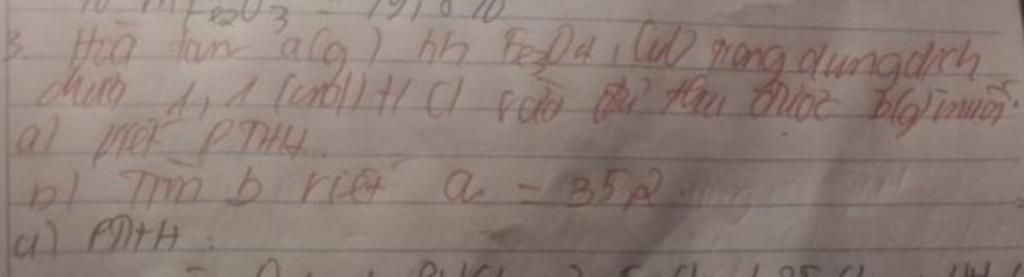 m Fe2O3 =
3. Hoà tan a(g) hh Fe3O4, CuO trong dung dịch
chứa 1,1 (mol) HCl vừa đủ thu được b(g) muối.
a) Viết PTHH.
b) Tìm b biết a = 35,2
a) PTHH: